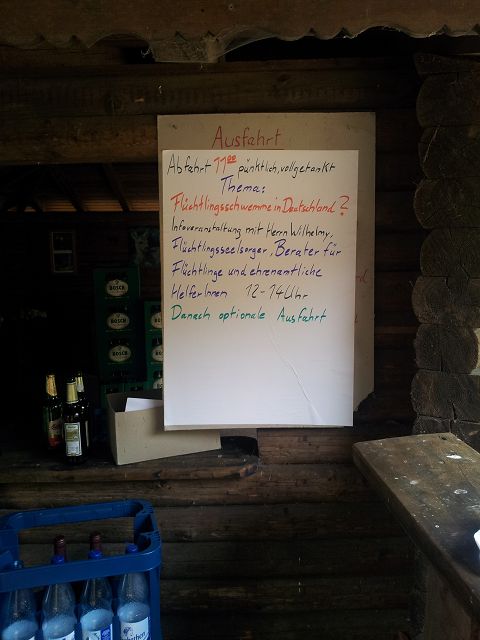 Ausfahrt
Abfahrt 11⁰⁰ pünktlich, vollgetankt
Thema:
Flüchtlingsschwemme in Deutschland?
Infoveranstaltung mit Herrn Wilhelmy,
Flüchtlingsseelsorger, Berater für
Flüchtlinge und ehrenamtliche
HelferInnen 12-14 Uhr
Danach optionale Ausfahrt
BOSCH
BOSCH
BOSCH